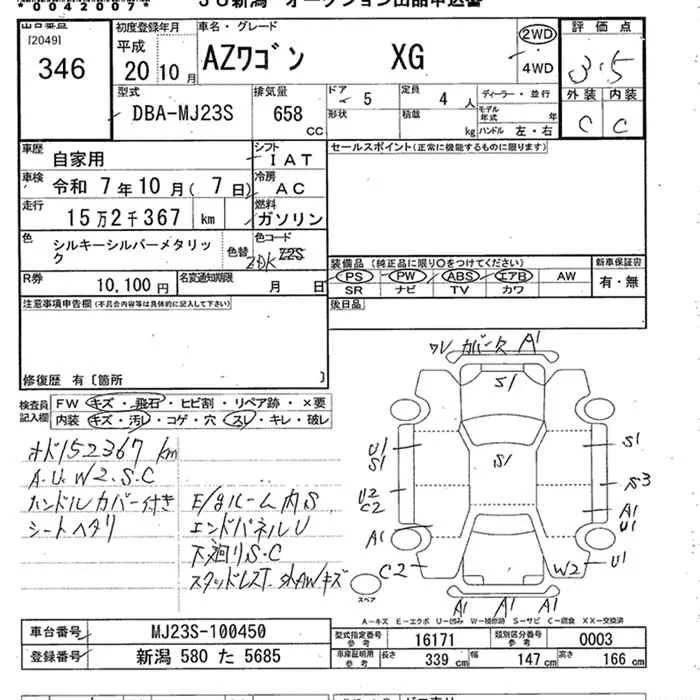 *00420074*
JU新潟 オークション出品申込書
出品番号
[2049]
346
初度登録年月
平成
20 10月
車名・グレード
AZワゴン XG
2WD
4WD
評価点
3.5
外装 内装
C C
型式
DBA-MJ23S
排気量
658 CC
ドア 5
形状
定員 4人
積載 kg
ディーラー・並行
モデル年式 年
ハンドル 左・右
車歴 自家用
シフト IAT
セールスポイント(正常に機能するものに限ります)
車検 令和 7年10月( 7日)
冷房 AC
走行 15万2千367 km
燃料 ガソリン
色 シルキーシルバーメタリック
色替
色コード
ZDK ZZS
装備品(純正品に限り○をつけてください)
PS PW ABS エアB AW
SR ナビ TV カワ
新車保証書
有・無
R券 10,100円
名変通知期限 月 日
注意事項申告欄(不具合内容等は具体的に記入して下さい)
後日品
修復歴 有〔箇所 〕
検査員記入欄
FW キズ・飛石・ヒビ割・リペア跡・×要
内装 キズ・汚レ・コゲ・穴・スレ・キレ・破レ
オド152367km
A.U.W2.S.C
ハンドルカバー付き
シートヘタリ
E/gルーム内S
エンドパネルU
下廻りS.C
スタッドレスT.社外AWキズ
ワレ カバー欠 A1
S1
S1
U1
S1
S1
U2
C2
S3
A1
U1
A1
C2
W2
U1
スペア
A1 A1 A1
A-キズ E-エクボ U-凹み W-補修跡 S-サビ C-腐食 XX-交換済
車台番号 MJ23S-100450
登録番号 新潟 580 た 5685
型式指定番号 参考 16171
類別区分番号 参考 0003
車庫証明用 参考 長さ 339cm 幅 147cm 高さ 166cm